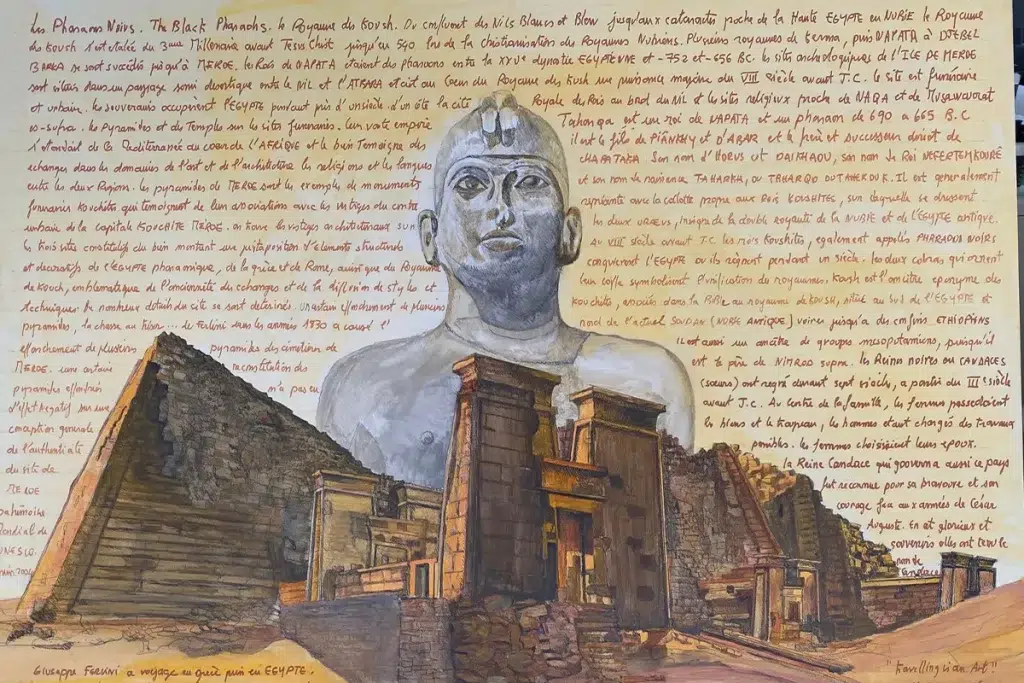 Les Pharaons Noirs. The Black Pharaohs. le Royaume de Koush. Du confluent des Nils Blancs et Bleu jusqu'aux cataractes proche de la Haute EGYPTE en NUBIE le Royaume
de Koush s'est étalée du 3ème Millénaire avant Jesus Christ jusqu'en 590 lors de la christianisation des Royaumes Nubiens. Plusieurs royaumes de Kerma, puis NAPATA à DJEBEL
BARKA se sont succédés jusqu'à MEROE. les Rois de NAPATA étaient des pharaons entre la XXVe dynastie EGYPTIENNE et -752 et -656 BC. les sites archéologiques de l'ILE DE MEROE
sont situés dans un paysage semi désertique entre le NIL et l'ATBARA était au Coeur du Royaume de Kush une puissance majeure du VIII siècle avant J.C. le site est funéraire
et urbain. les souverains occupèrent l'EGYPTE pendant près d'un siècle. d'un été la cité Royale des Rois au bord du NIL et les sites religieux proche de NAQA et de Musawwarat
es-sufra. les Pyramides et des Temples sur les sites funéraires. leur vaste empire Taharqa est un roi de NAPATA et un pharaon de 690 à 665 B.C
s'étendait de la Méditerranée au coeur de l'AFRIQUE et le bien Témoigne des il est le fils de PIANKHY et d'ABAR et le frère et successeur
échanges dans les domaines de l'art et de l'architecture les religions et les langues CHAPATAKA Son nom d'HORUS et son nom de Roi NEFERTEMKOURÉ
entre les deux Régions. les pyramides de MEROE sont les exemples de monuments et son nom de naissance TAHARKH, ou TAHARQO. IL est généralement
funéraires Kouchites qui témoignent de leur associations avec les vestiges du centre représenté avec la calotte propre aux Rois KOUSHITES, sur laquelle se dressent
urbain de la capitale KOUCHITE MEROE. les vestiges architecturaux sur les deux uraeus, insigne de la double royauté de la NUBIE et de l'EGYPTE antique.
les trois sites constitutifs du bien montrent une juxtaposition d'éléments structurels Au VIII siècle avant J.C. les rois Koushites, également appelés PHARAONS NOIRS
et décoratifs de l'EGYPTE pharaonique, de la Grèce et de Rome, ainsi que du Royaume conquièrent l'EGYPTE où ils règnent pendant un siècle. les deux cobras qui ornent
de Kouch, emblématique de l'ancienneté des échanges et de la diffusion de styles et leur coiffe symbolisent l'unification des royaumes. Koush est l'ancêtre éponyme des
techniques. De nombreux détails du site se sont détériorés. effondrement de plusieurs Kouchites, dans la Bible au royaume de KOUSH, situé au Sud de l'EGYPTE et
pyramides, la chasse au trésor... de Ferlini dans les années 1830 a causé l' nord de l'actuel SOUDAN (NUBIE ANTIQUE) voire jusqu'à des confins ETHIOPIENS
effondrement de plusieurs pyramides des cimetières de il est aussi un ancêtre de groupes mésopotamiens, puisqu'il
MEROE. une certaine reconstitution des est le père de NIMROD supra. les Reines noires ou CANDACES
pyramides effondrées n'a pas eu (soeurs) ont régné durant sept siècles, à partir du III siècle
d'effet négatif sur une avant J.C. Au centre de la famille, les femmes possédaient
conception générale les biens et le troupeau, les hommes étant chargés des travaux
de l'authenticité pénibles. les femmes choisissaient leurs époux.
du site de la Reine Candace qui gouverna aussi ce pays
MEROE fut reconnue pour sa bravoure et son
patrimoine courage face aux armées de César
Mondial de Auguste. En et glorieux et
UNESCO souvenirs elles ont tenu le
nom de
Candace
Giuseppe FERLINI a voyagé en grèce puis en EGYPTE.
"travelling is an Art"